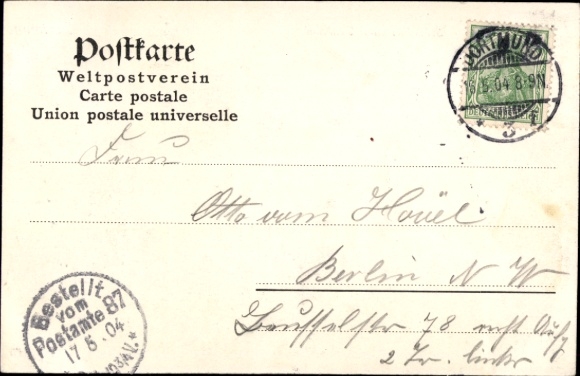 Postkarte
Weltpostverein
Carte postale
Union postale universelle
DORTMUND
.5.04 8-9N
3
Otto vom Hövel
Berlin N W
Beusselstr 78 recht Aufg
2 Tr. links
Bestellt
vom
Postamte 87
17 5. 04